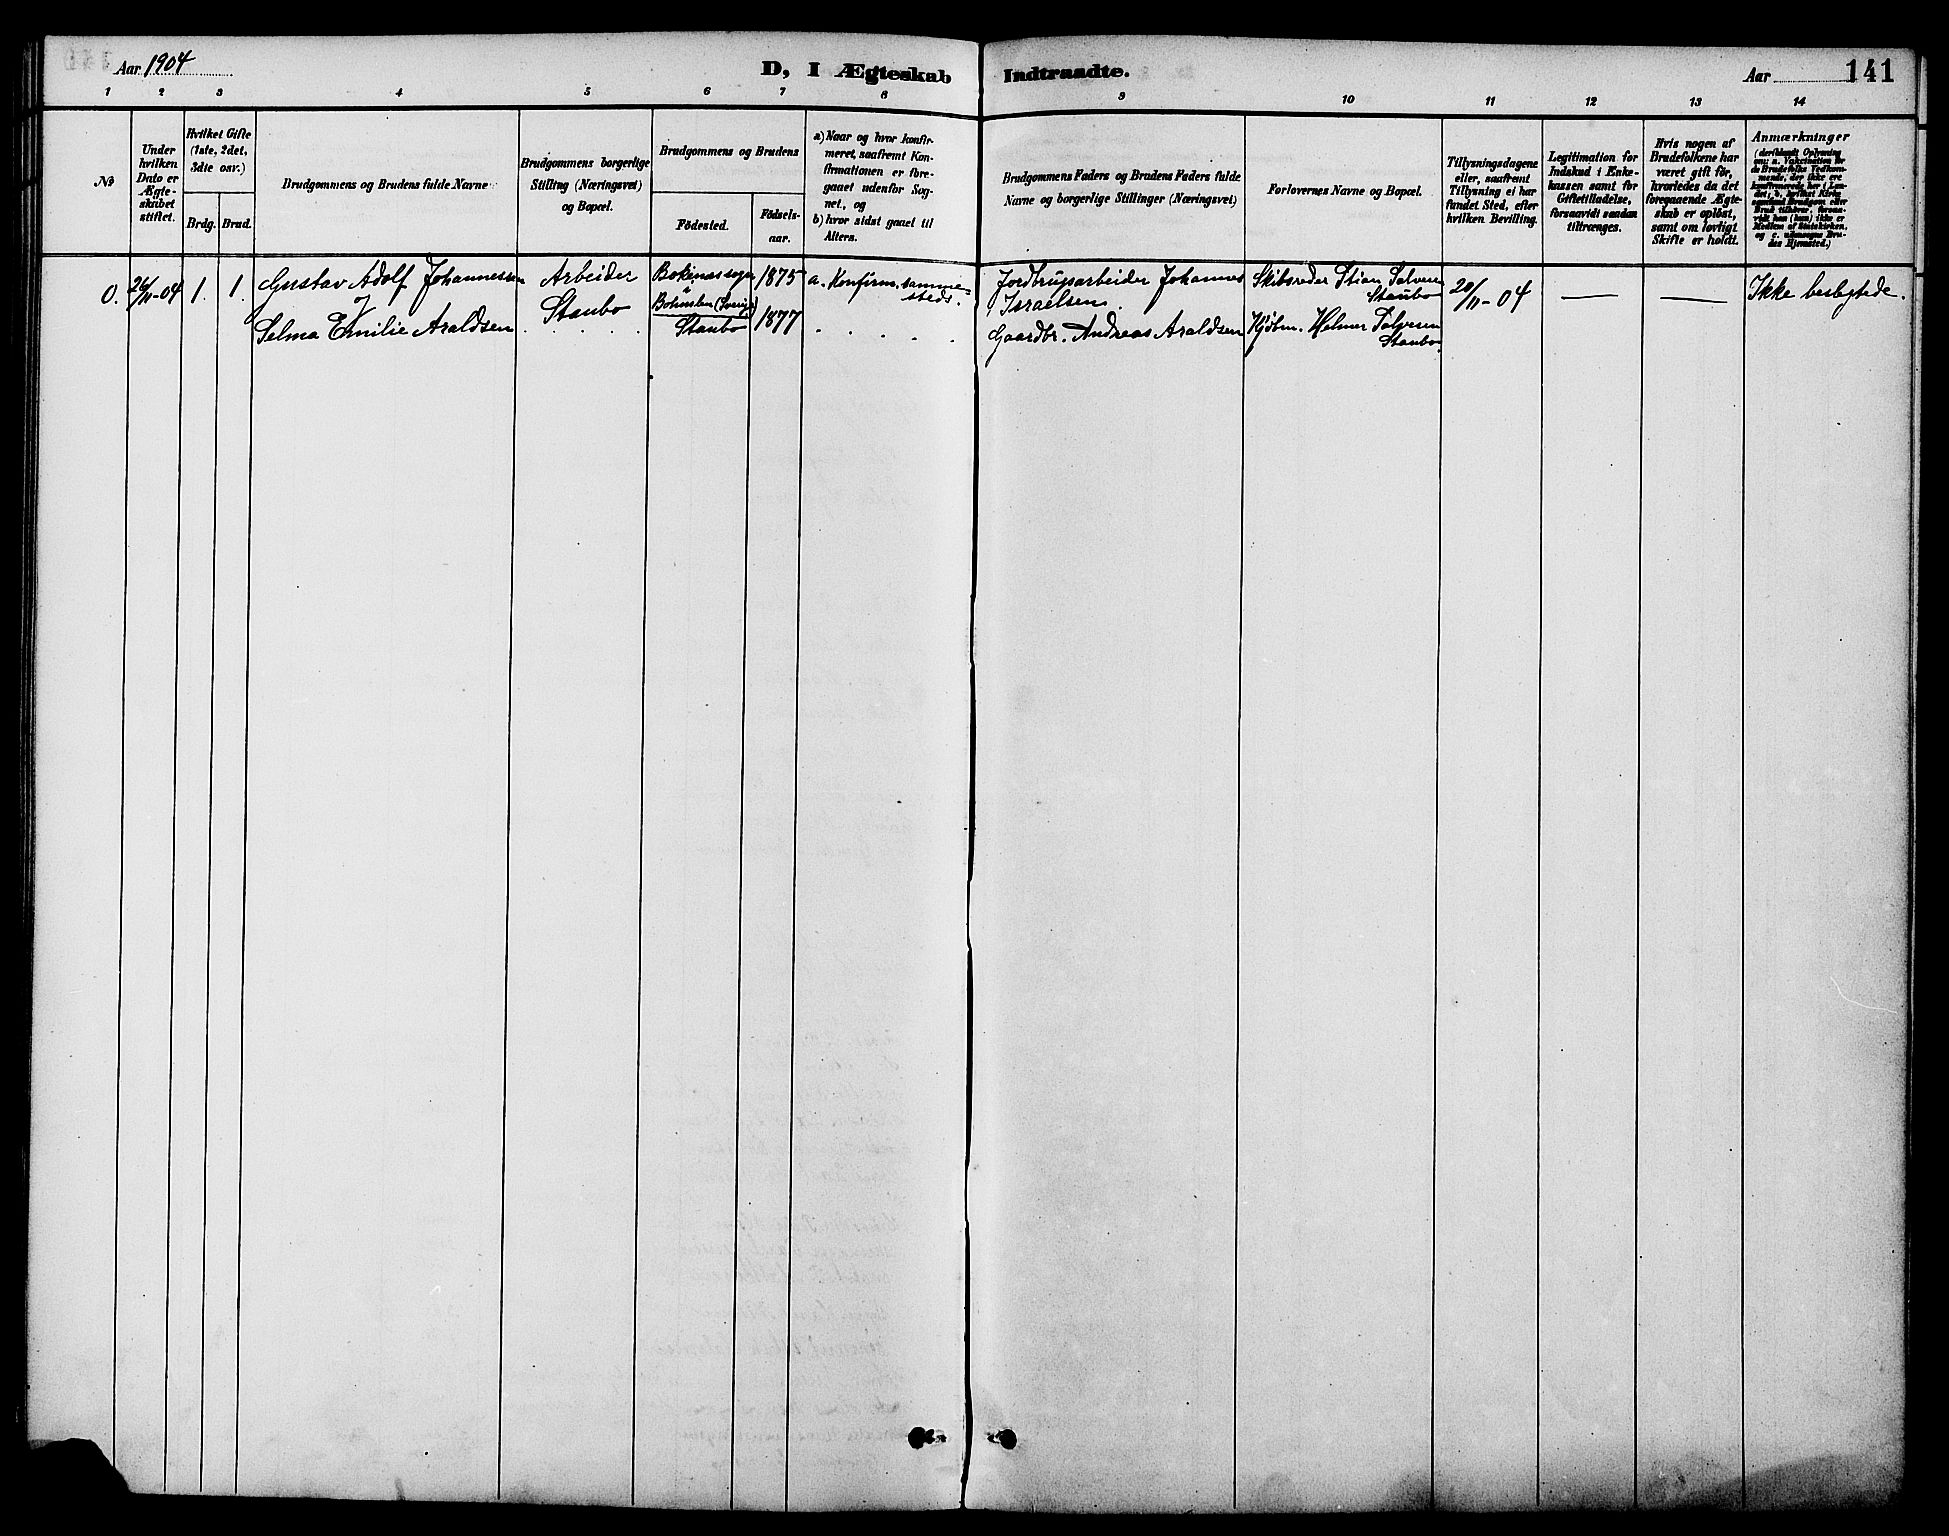 Aar 1904
D, I Ægteskab Indtraadte.
Aar 141
1 2 3 4 5 6 7 8 9 10 11 12 13 14
No
Under hvilken Dato er Ægteskabet stiftet.
Hvilket Gifte (1ste, 2det, 3die osv.)
Brdg. Brud.
Brudgommens og Brudens fulde Navne
Brudgommens borgerlige Stilling (Næringsvei) og Bopæl.
Brudgommens og Brudens
Födested.
Födselsaar.
a) Naar og hvor konfirmeret, saafremt Konfirmationen er foregaaet udenfor Sognet, og
b) hvor sidst gaaet til Alters.
Brudgommens Faders og Brudens Faders fulde Navne og borgerlige Stillinger (Næringsvei)
Forlovernes Navne og Bopæl.
Tillysningsdagene eller, saafremt Tillysning ei har fundet Sted, efter hvilken Bevilling.
Legitimation for Indskud i Enkekassen samt for Giftetilladelse, forsaavidt saadan tiltrænges.
Hvis nogen af Brudefolkene har været gift för, hvorledes da det foregaaende Ægteskab er oplöst, samt om lovligt Skifte er holdt.
Anmærkninger
0. 26/11-04 1. 1. Gustav Adolf Johannessen Arbeider Bokenæs sogn 1875 a. Konfirm. sammesteds. Jordbrugsarbeider Johannes Israelsen. Skibsreder Stian Salvesen Staubo 20/11-04 — — Ikke beslegtede.
Staubo (Sverige)
Selma Emilie Araldsen Staubo 1877 Gaardbr. Andreas Araldsen Kjøbm. Helmer Salvesen Staubo.